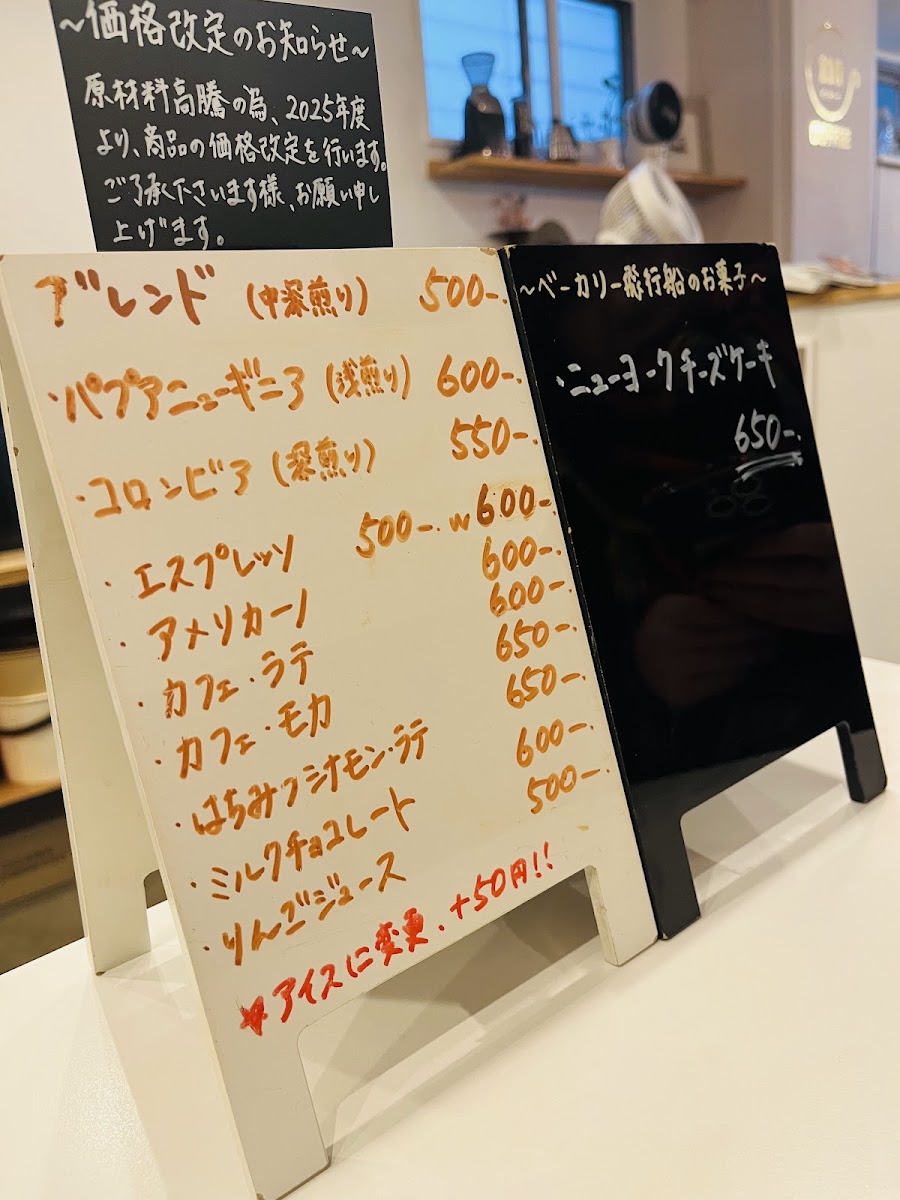 ~価格改定のお知らせ~
原材料高騰の為、2025年度
より、商品の価格改定を行います。
ご了承下さいます様、お願い申し
上げます。
ブレンド (中深煎り) 500-.
・パプアニューギニア (浅煎り) 600-.
・コロンビア (深煎り) 550-.
・エスプレッソ 500-. W 600-.
・アメリカーノ 600-.
・カフェ・ラテ 600-.
・カフェ・モカ 650-.
・はちみつシナモン・ラテ 650-.
・ミルクチョコレート 600-.
・りんごジュース 500-.
*アイスに変更、+50円!!
~ベーカリー飛行船のお菓子~
・ニューヨークチーズケーキ
650-.